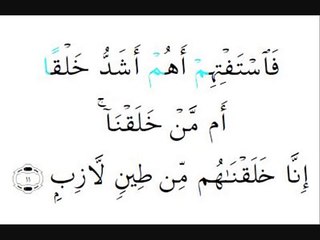 فَٱسْتَفْتِهِمْ أَهُمْ أَشَدُّ خَلْقًا
أَم مَّنْ خَلَقْنَآ ۚ
إِنَّا خَلَقْنَـٰهُم مِّن طِينٍ لَّازِبٍۭ ١١